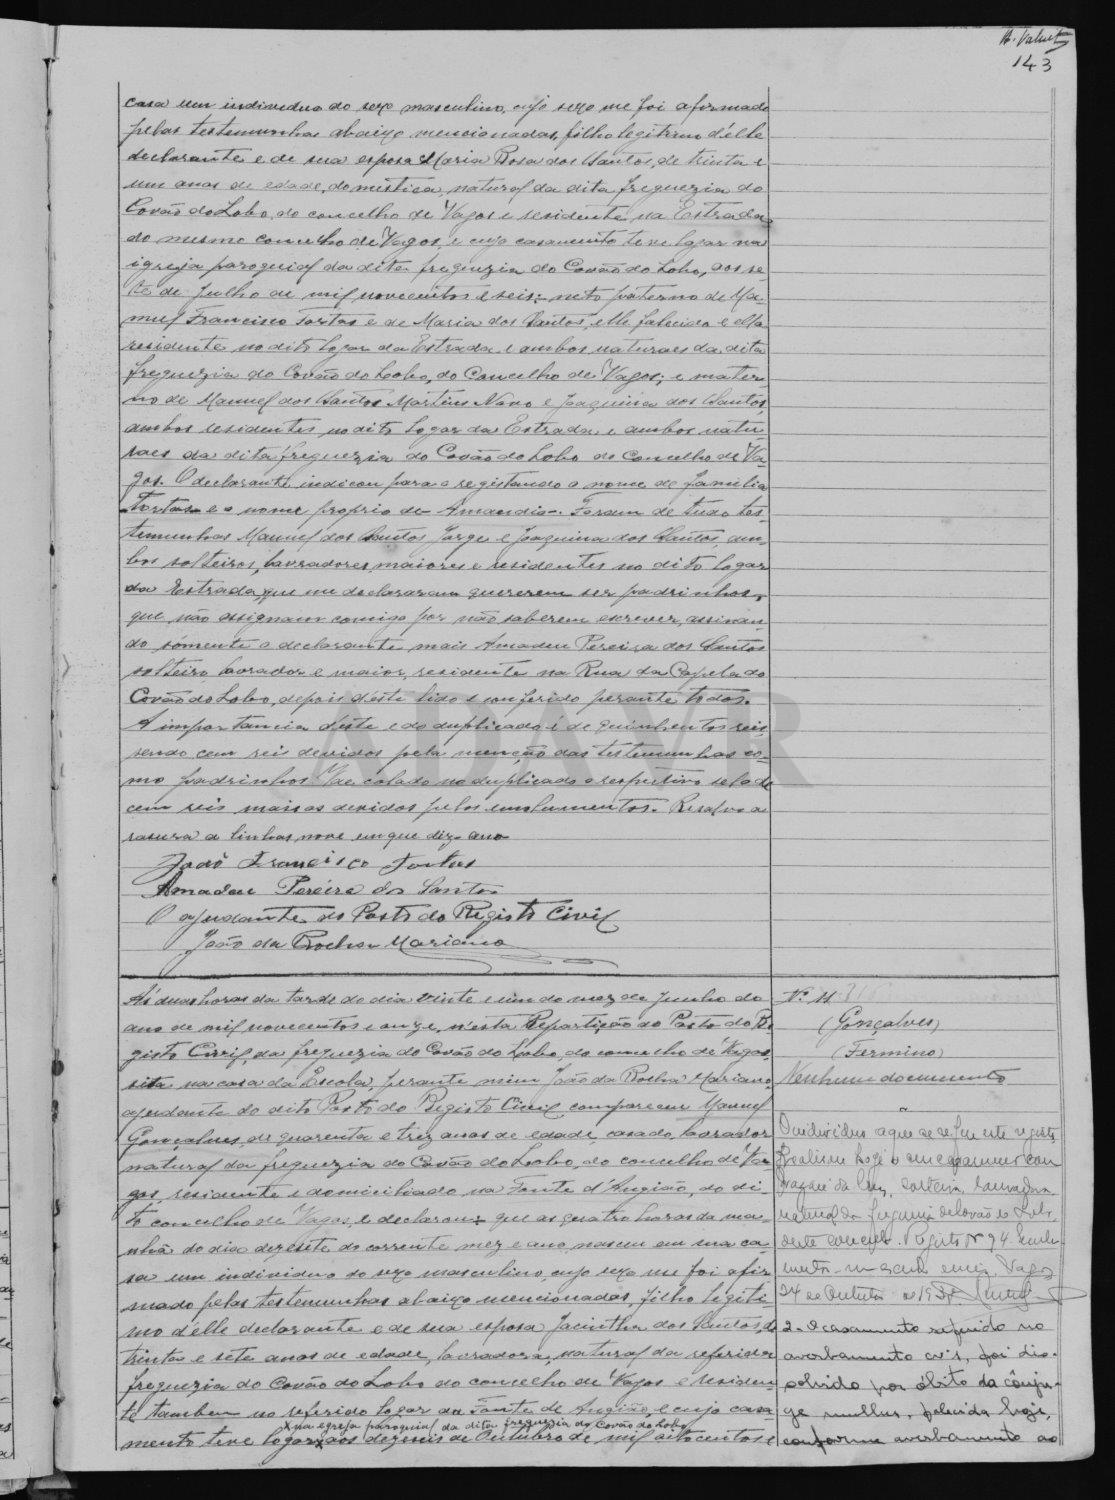 A. Valente
143
casa um individuo do sexo masculino, cujo sexo me foi afirmado
pelas testemunhas abaixo mencionadas, filho legitimo d'elle
declarante e de sua esposa Maria Rosa dos Santos, de trinta e
um anos de edade, domestica, natural da dita freguezia do
Covão do Lobo, do concelho de Vagos e residente na Estrada
do mesmo concelho de Vagos, e cujo casamento teve logar na
igreja paroquial da dita freguezia do Covão do Lobo, aos se-
te de Julho de mil novecentos e seis; neto paterno de Ma-
nuel Francisco Tortas e de Maria dos Santos, elle falecido e ella
residente no dito logar da Estrada e ambos naturaes da dita
freguezia do Covão do Lobo, do Concelho de Vagos; e mater-
no de Manuel dos Santos Martins Novo e Joaquina dos Santos,
ambos residentes no dito logar da Estrada e ambos natu-
raes da dita freguezia do Covão do Lobo do Concelho de Va-
gos. O declarante indicou para o registando o nome de familia
Tortas e o nome proprio de Amandio. Foram de tudo tes-
temunhas Manuel dos Santos Jorge e Joaquina dos Santos, am-
bos solteiros, lavradores, maiores e residentes no dito logar
da Estrada, que me declararam quererem ser padrinhos,
que não assignam comigo por não saberem escrever, assinan-
do sómente o declarante mais Amadeu Pereira dos Santos
solteiro, lavrador e maior, residente na Rua da Capela do
Covão do Lobo, depois d'este lido e conferido perante todos.
A importancia d'este e do duplicado é de quinhentos reis,
sendo cem reis devidos pela menção das testemunhas co-
mo padrinhos. Vae colado no duplicado o respectivo selo de
cem reis mais os devidos pelos emolumentos. Resalvo a
rasura a linhas nove em que diz ano
João Francisco Tortas
Amadeu Pereira dos Santos
O ajudante do Posto do Registo Civil
João da Rocha Mariano
Ás duas horas da tarde do dia vinte e um do mez de Junho do
ano de mil novecentos e onze, n'esta Repartição do Posto do Re-
gisto Civil, da freguezia do Covão do Lobo, do concelho de Vagos,
sita na casa da Escola, perante mim João da Rocha Mariano,
ajudante do dito Posto do Registo Civil compareceu Manuel
Gonçalves, de quarenta e trez anos de edade, casado, lavrador
natural da freguezia do Covão do Lobo, do concelho de Va-
gos, residente e domiciliado na Fonte d'Angião, do di-
to concelho de Vagos, e declarou: que as quatro horas da ma-
nhã do dia dezesete do corrente mez e ano, nasceu em sua ca-
sa um individuo do sexo masculino, cujo sexo me foi afir
mado pelas testemunhas abaixo mencionadas, filho legiti-
mo d'elle declarante e de sua esposa Jacintha dos Santos, de
trinta e sete anos de edade, lavradora, natural da referida
freguezia do Covão do Lobo do concelho de Vagos e residen-
te tambem no referido logar da Fonte de Angião, e cujo casa-
na egreja paroquial da dita freguezia do Covão do Lobo
mento teve logar aos dezeseis de Outubro de mil oitocentos e
Nº 11
(Gonçalves)
(Fermino)
Nenhum documento
O individuo a que se refere este registo
realisou hoje o seu casamento com
da Cruz, solteira, lavradora,
natural da freguesia de Covão do Lobo,
deste concelho. Registo Nº 94.
Vagos
24 de Outubro de
2 - O casamento referido no
averbamento nº 1, foi dis-
solvido por óbito da cônju-
ge mulher, falecida hoje,
conforme averbamento ao